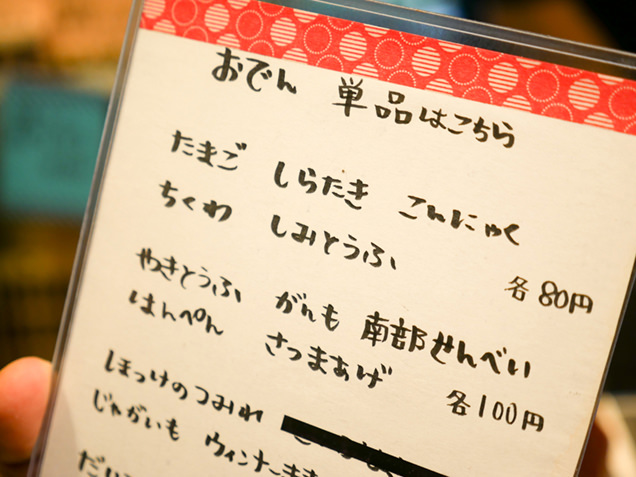 おでん 単品はこちら
たまご しらたき こんにゃく
ちくわ しみとうふ
各80円
やきとうふ がんも 南部せんべい
はんぺん さつまあげ
各100円
ほっけのつみれ
じゃがいも ウィンナー